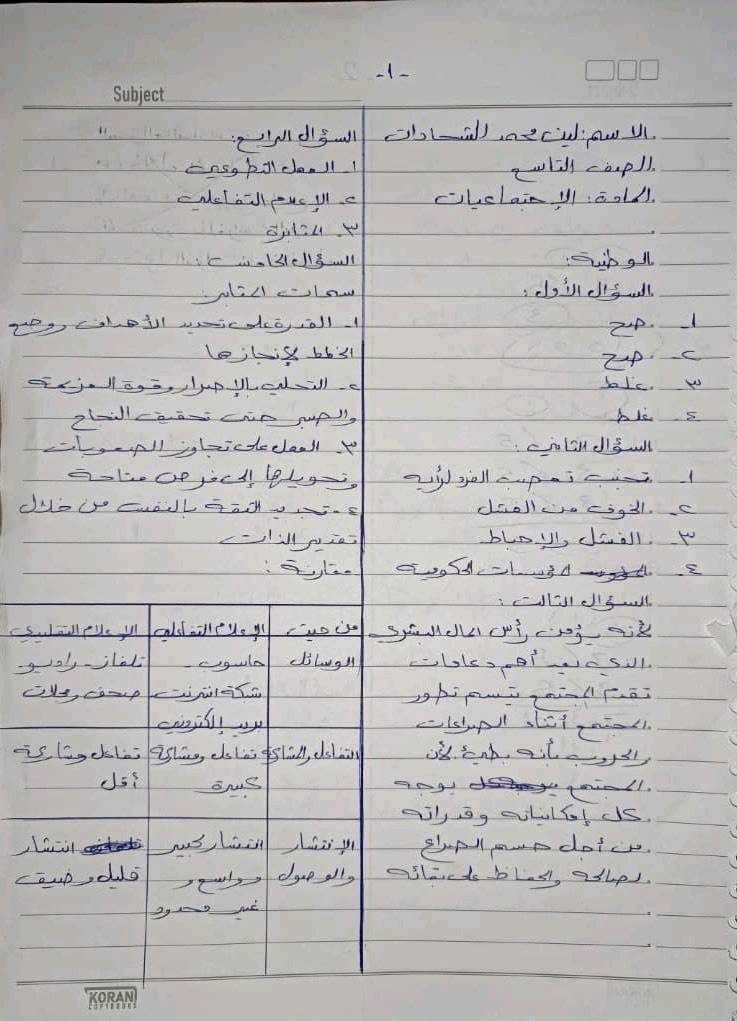 -١-
Subject
الاسم: لين محمد الشحادات
الصف التاسع
المادة: الاجتماعيات
الوطنية:
السؤال الأول:
١- صح
٢- صح
٣- غلط
٤- غلط
السؤال الثاني:
١- تجنب تعصب الفرد لرأيه
٢- الخوف من الفشل
٣- الفشل والإحباط
٤- المؤسسات الحكومية
السؤال الثالث:
لأنه يؤمن رأس المال البشري
الذي يعد أهم دعامات
تقدم المجتمع يتسم تطور
المجتمع أثناء الصراعات
والحروب بأنه بطيء لأن
المجتمع يوجه
كل إمكانياته وقدراته
من أجل حسم الصراع
لصالحه والحفاظ على بقائه
السؤال الرابع:
١- العمل التطوعي
٢- الإعلام التفاعلي
٣- المثابرة
السؤال الخامس:
سمات المثابر:
١- القدرة على تحديد الأهداف ووضع
الخطط لإنجازها
٢- التحلي بالإصرار وقوة العزيمة
والصبر حتى تحقيق النجاح
٣- العمل على تجاوز الصعوبات
وتحويلها إلى فرص متاحة
٤- تجديد الثقة بالنفس من خلال
تقدير الذات
مقارنة:
من حيث الإعلام التفاعلي الإعلام التقليدي
الوسائل حاسوب - تلفاز - راديو
شبكة انترنت صحف ومجلات
بريد إلكتروني
التفاعل والمشاركة تفاعل ومشاركة تفاعل ومشاركة
كبيرة أقل
الإنتشار انتشار كبير انتشار
والوصول وواسع و قليل وضيق
غير محدود
KORAN
COPYBOOKS